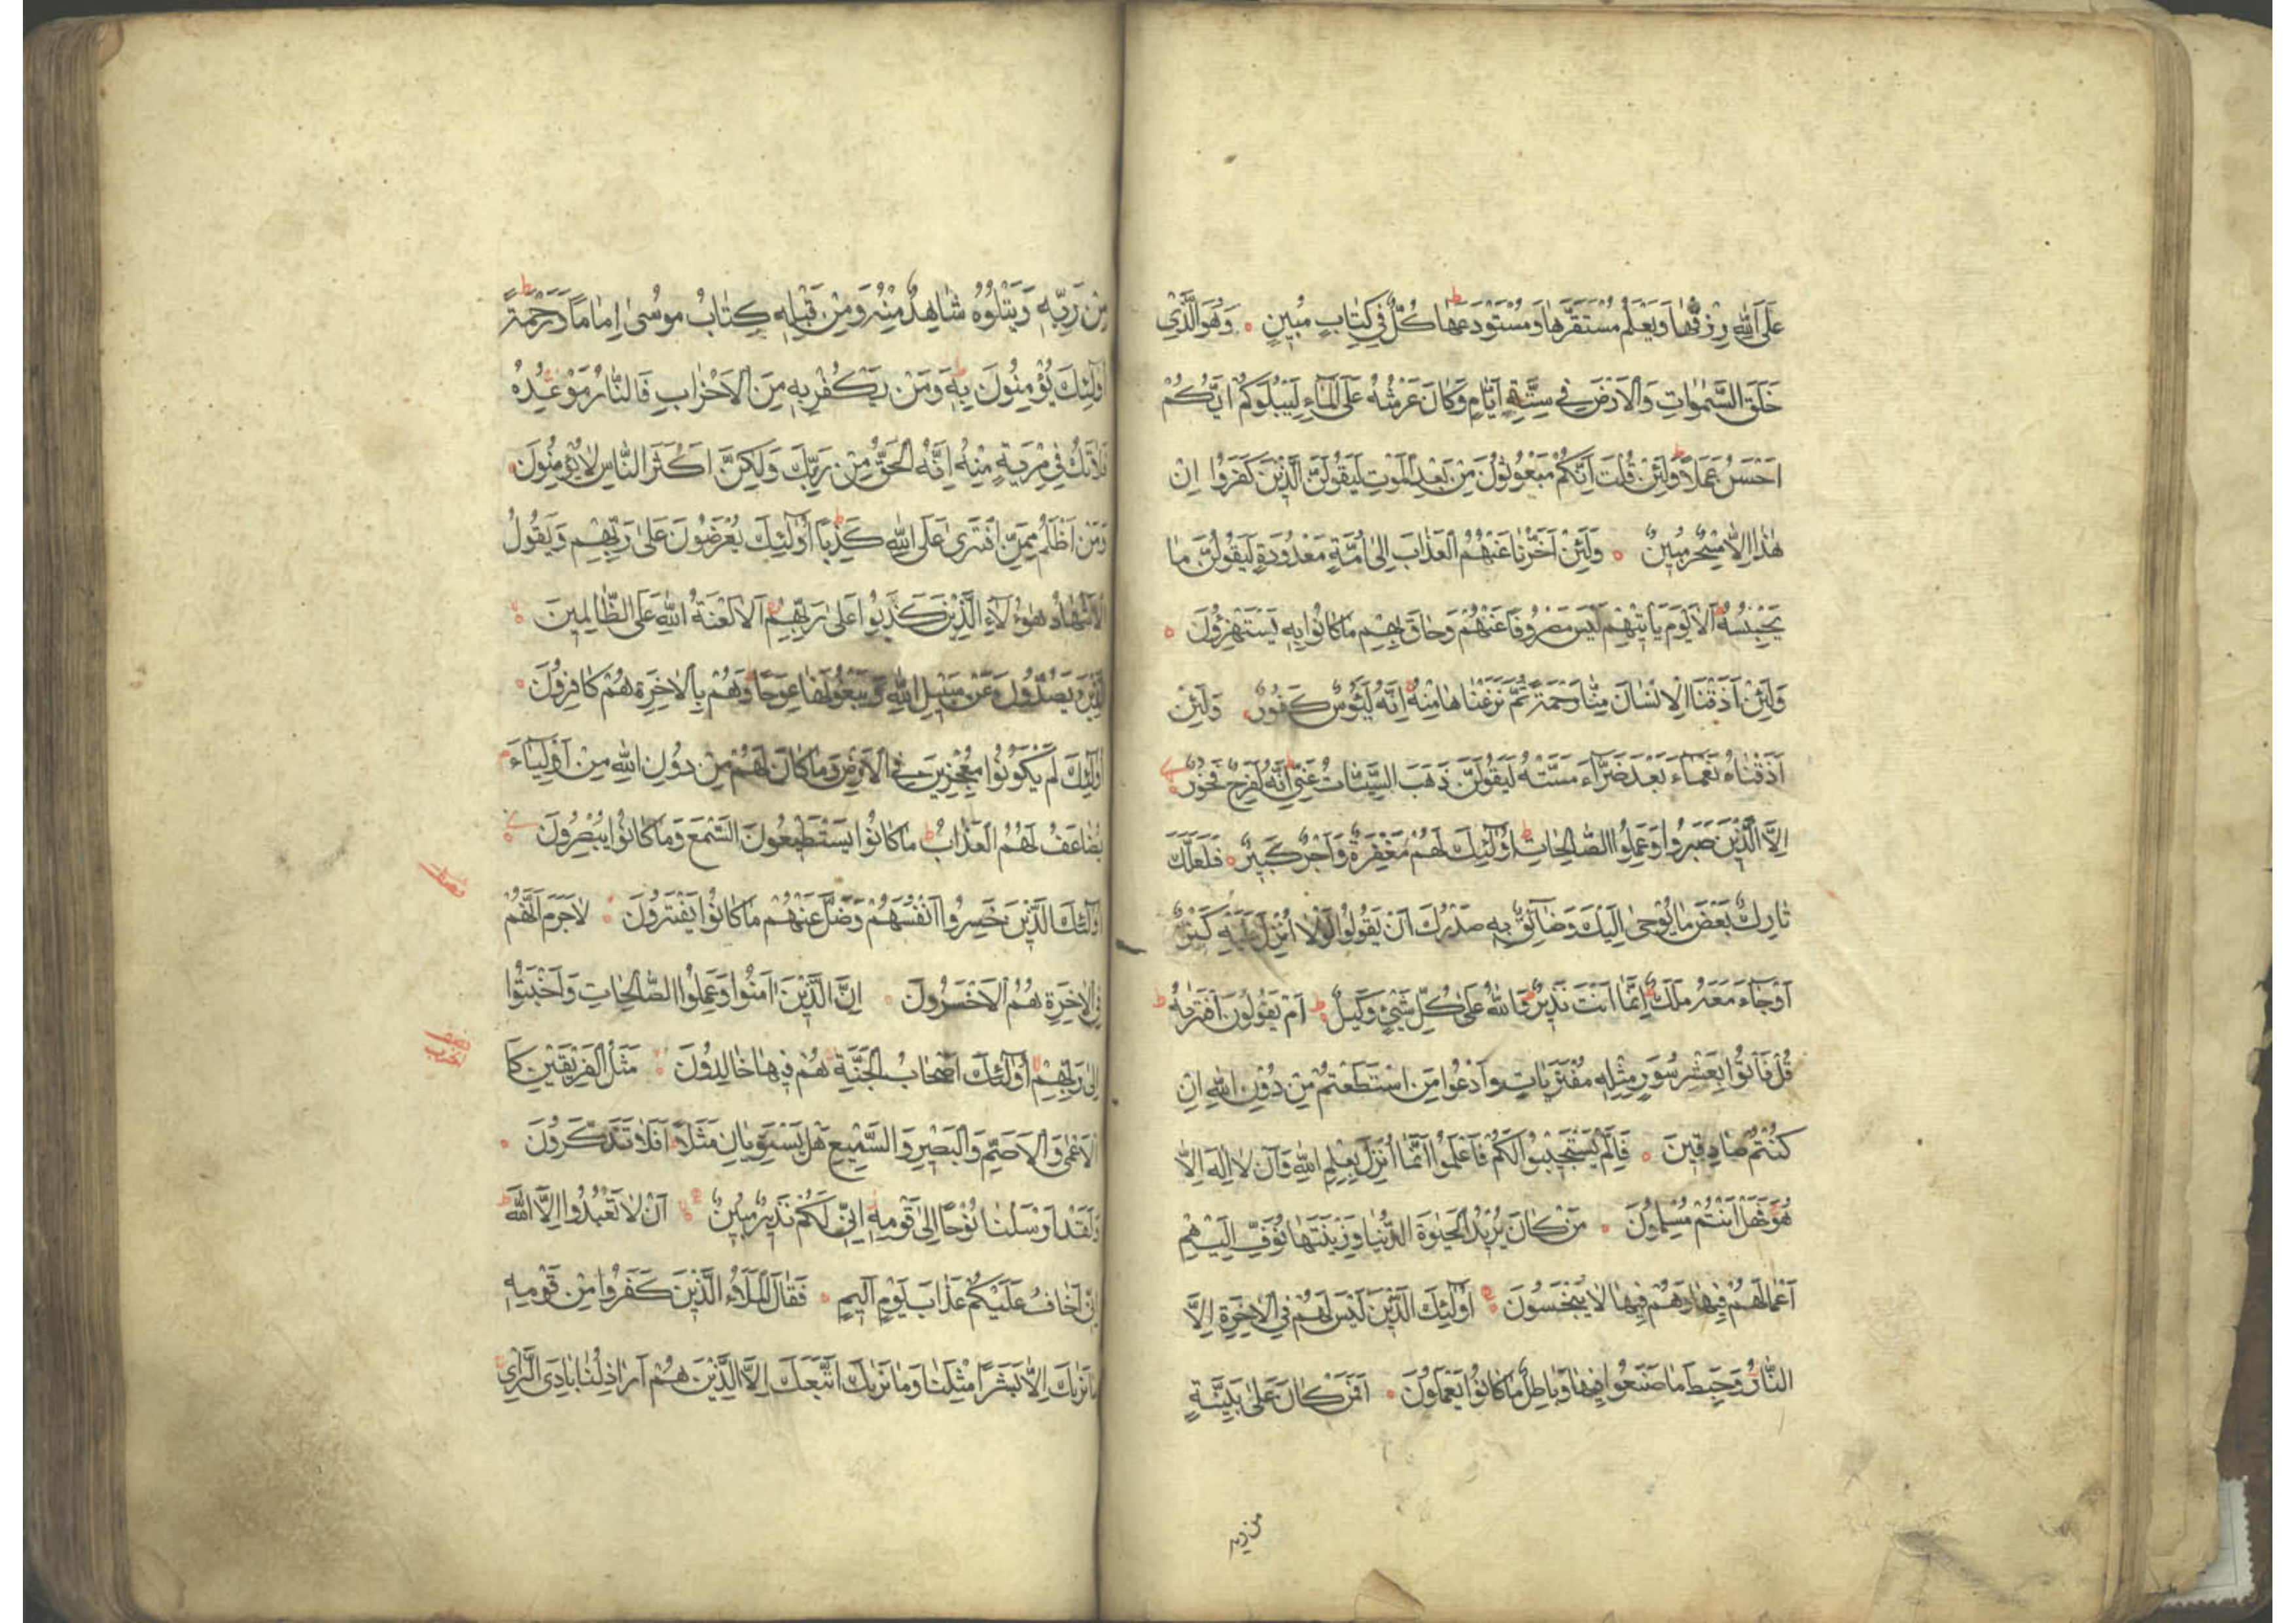 عَلَى اللّٰهِ رِزْقُهَا وَيَعْلَمُ مُسْتَقَرَّهَا وَمُسْتَوْدَعَهَا ط كُلٌّ فِي كِتَابٍ مُبِينٍ وَهُوَ الَّذِي
خَلَقَ السَّمٰوَاتِ وَالْاَرْضَ فِي سِتَّةِ اَيَّامٍ وَكَانَ عَرْشُهُ عَلَى الْمَاءِ لِيَبْلُوَكُمْ اَيُّكُمْ
اَحْسَنُ عَمَلًا ط وَلَئِنْ قُلْتَ اِنَّكُمْ مَبْعُوثُونَ مِنْ بَعْدِ الْمَوْتِ لَيَقُولَنَّ الَّذِينَ كَفَرُوا اِنْ
هٰذَا اِلَّا سِحْرٌ مُبِينٌ وَلَئِنْ اَخَّرْنَا عَنْهُمُ الْعَذَابَ اِلٰى اُمَّةٍ مَعْدُودَةٍ لَيَقُولُنَّ مَا
يَحْبِسُهُ ط اَلَا يَوْمَ يَأْتِيهِمْ لَيْسَ مَصْرُوفًا عَنْهُمْ وَحَاقَ بِهِمْ مَا كَانُوا بِهِ يَسْتَهْزِؤُنَ
وَلَئِنْ اَذَقْنَا الْاِنْسَانَ مِنَّا رَحْمَةً ثُمَّ نَزَعْنَاهَا مِنْهُ اِنَّهُ لَيَئُوسٌ كَفُورٌ وَلَئِنْ
اَذَقْنَاهُ نَعْمَاءَ بَعْدَ ضَرَّاءَ مَسَّتْهُ لَيَقُولَنَّ ذَهَبَ السَّيِّئَاتُ عَنِّي ط اِنَّهُ لَفَرِحٌ فَخُورٌ
اِلَّا الَّذِينَ صَبَرُوا وَعَمِلُوا الصَّالِحَاتِ ط اُولٰئِكَ لَهُمْ مَغْفِرَةٌ وَاَجْرٌ كَبِيرٌ فَلَعَلَّكَ
تَارِكٌ بَعْضَ مَا يُوحٰى اِلَيْكَ وَضَائِقٌ بِهِ صَدْرُكَ اَنْ يَقُولُوا لَوْلَا اُنْزِلَ عَلَيْهِ كَنْزٌ
اَوْ جَاءَ مَعَهُ مَلَكٌ ط اِنَّمَا اَنْتَ نَذِيرٌ ط وَاللّٰهُ عَلٰى كُلِّ شَيْءٍ وَكِيلٌ ط اَمْ يَقُولُونَ افْتَرٰيهُ ط
قُلْ فَأْتُوا بِعَشْرِ سُوَرٍ مِثْلِهِ مُفْتَرَيَاتٍ وَادْعُوا مَنِ اسْتَطَعْتُمْ مِنْ دُونِ اللّٰهِ اِنْ
كُنْتُمْ صَادِقِينَ فَاِلَّمْ يَسْتَجِيبُوا لَكُمْ فَاعْلَمُوا اَنَّمَا اُنْزِلَ بِعِلْمِ اللّٰهِ وَاَنْ لَا اِلٰهَ اِلَّا
هُوَ فَهَلْ اَنْتُمْ مُسْلِمُونَ مَنْ كَانَ يُرِيدُ الْحَيٰوةَ الدُّنْيَا وَزِينَتَهَا نُوَفِّ اِلَيْهِمْ
اَعْمَالَهُمْ فِيهَا وَهُمْ فِيهَا لَا يُبْخَسُونَ اُولٰئِكَ الَّذِينَ لَيْسَ لَهُمْ فِي الْاٰخِرَةِ اِلَّا
النَّارُ وَحَبِطَ مَا صَنَعُوا فِيهَا وَبَاطِلٌ مَا كَانُوا يَعْمَلُونَ اَفَمَنْ كَانَ عَلٰى بَيِّنَةٍ
من ربه
مِنْ رَبِّهِ وَيَتْلُوهُ شَاهِدٌ مِنْهُ وَمِنْ قَبْلِهِ كِتَابُ مُوسٰى اِمَامًا وَرَحْمَةً ط
اُولٰئِكَ يُؤْمِنُونَ بِهِ ط وَمَنْ يَكْفُرْ بِهِ مِنَ الْاَحْزَابِ فَالنَّارُ مَوْعِدُهُ
فَلَا تَكُ فِي مِرْيَةٍ مِنْهُ اِنَّهُ الْحَقُّ مِنْ رَبِّكَ وَلٰكِنَّ اَكْثَرَ النَّاسِ لَا يُؤْمِنُونَ
وَمَنْ اَظْلَمُ مِمَّنِ افْتَرٰى عَلَى اللّٰهِ كَذِبًا ط اُولٰئِكَ يُعْرَضُونَ عَلٰى رَبِّهِمْ وَيَقُولُ
الْاَشْهَادُ هٰؤُلَاءِ الَّذِينَ كَذَبُوا عَلٰى رَبِّهِمْ اَلَا لَعْنَةُ اللّٰهِ عَلَى الظَّالِمِينَ
الَّذِينَ يَصُدُّونَ عَنْ سَبِيلِ اللّٰهِ وَيَبْغُونَهَا عِوَجًا ط وَهُمْ بِالْاٰخِرَةِ هُمْ كَافِرُونَ
اُولٰئِكَ لَمْ يَكُونُوا مُعْجِزِينَ فِي الْاَرْضِ وَمَا كَانَ لَهُمْ مِنْ دُونِ اللّٰهِ مِنْ اَوْلِيَاءَ
يُضَاعَفُ لَهُمُ الْعَذَابُ ط مَا كَانُوا يَسْتَطِيعُونَ السَّمْعَ وَمَا كَانُوا يُبْصِرُونَ
اُولٰئِكَ الَّذِينَ خَسِرُوا اَنْفُسَهُمْ وَضَلَّ عَنْهُمْ مَا كَانُوا يَفْتَرُونَ لَا جَرَمَ اَنَّهُمْ
فِي الْاٰخِرَةِ هُمُ الْاَخْسَرُونَ اِنَّ الَّذِينَ اٰمَنُوا وَعَمِلُوا الصَّالِحَاتِ وَاَخْبَتُوا
اِلٰى رَبِّهِمْ اُولٰئِكَ اَصْحَابُ الْجَنَّةِ هُمْ فِيهَا خَالِدُونَ مَثَلُ الْفَرِيقَيْنِ كَا
الْاَعْمٰى وَالْاَصَمِّ وَالْبَصِيرِ وَالسَّمِيعِ هَلْ يَسْتَوِيَانِ مَثَلًا ط اَفَلَا تَذَكَّرُونَ
وَلَقَدْ اَرْسَلْنَا نُوحًا اِلٰى قَوْمِهِ اِنِّي لَكُمْ نَذِيرٌ مُبِينٌ اَنْ لَا تَعْبُدُوا اِلَّا اللّٰهَ ط
اِنِّي اَخَافُ عَلَيْكُمْ عَذَابَ يَوْمٍ اَلِيمٍ فَقَالَ الْمَلَاُ الَّذِينَ كَفَرُوا مِنْ قَوْمِهِ
مَا نَرٰيكَ اِلَّا بَشَرًا مِثْلَنَا وَمَا نَرٰيكَ اتَّبَعَكَ اِلَّا الَّذِينَ هُمْ اَرَاذِلُنَا بَادِيَ الرَّاْيِ